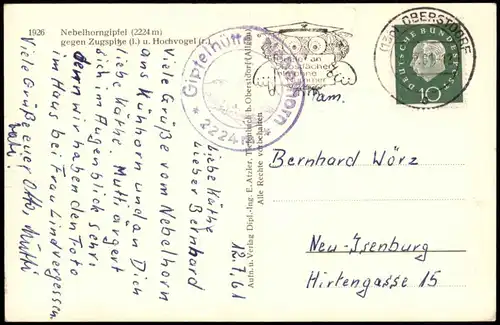 1926 Nebelhorngipfel (2224 m)
gegen Zugspitze (l.) u. Hochvogel (r.)
Gipfelhütte Nebelhorn
* 2224 m *
(13b) OBERSTDORF
DEUTSCHE BUNDESPOST
10
u. Fam.
Bernhard Wörz
Neu-Isenburg
Hirtengasse 15
Aufn. u. Verlag Dipl.-Ing. E. Atzler, b. Oberstdorf (Allgäu)
Alle Rechte vorbehalten
12.7.61
Liebe Käthe
lieber Bernhard
Viele Grüße vom Nebelhorn
aus Kühhorn und an Dich
liebe Käthe. Mutti ärgert
sich im Augenblick sehr,
denn wir haben den Foto
im Haus bei Frau Lind vergessen.
Viele Grüße euer Otto, Mutti